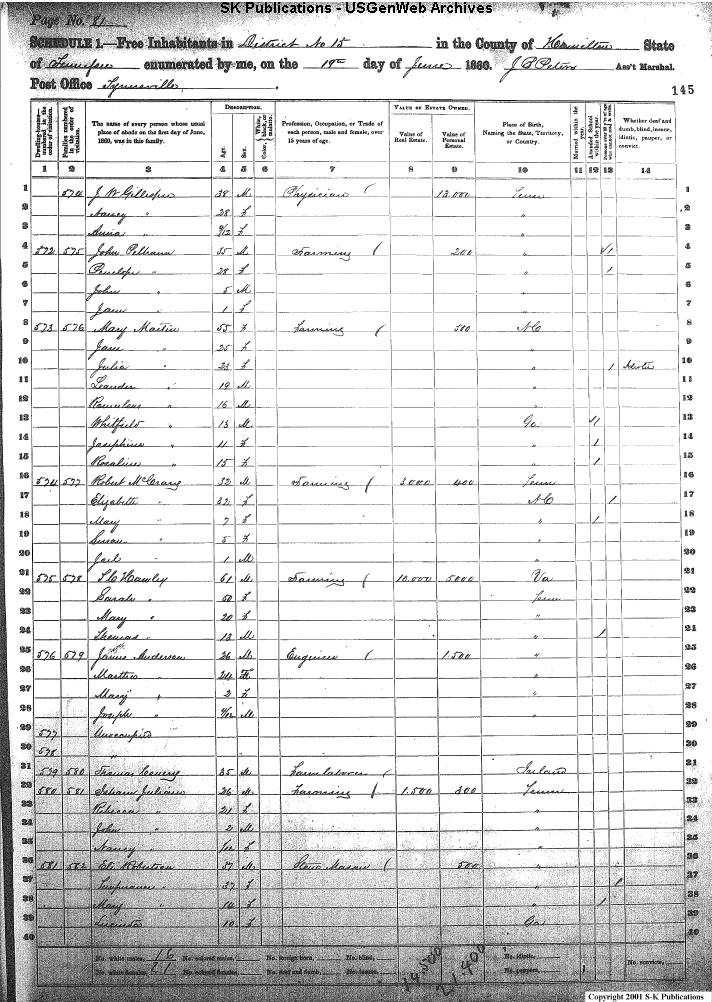 SK Publications - USGenWeb Archives
Page No. 81
SCHEDULE 1.—Free Inhabitants in District No 15 in the County of Hamilton State
of Tennessee enumerated by me, on the 19th day of June 1860. J B Peters Ass't Marshal.
Post Office Tynersville
145
Dwelling-houses— numbered in the order of visitation.
Families numbered in the order of visitation.
The name of every person whose usual place of abode on the first day of June, 1860, was in this family.
DESCRIPTION.
Age.
Sex.
Color, White, black, or mulatto.
Profession, Occupation, or Trade of each person, male and female, over 15 years of age.
VALUE OF ESTATE OWNED.
Value of Real Estate.
Value of Personal Estate.
Place of Birth, Naming the State, Territory, or Country.
Married within the year.
Attended School within the year.
Persons over 20 y'rs of age who cannot read & write.
Whether deaf and dumb, blind, insane, idiotic, pauper, or convict.
1 2 3 4 5 6 7 8 9 10 11 12 13 14
1 574 J W Gillespie 38 M Physician 12.000 Tenn 1
2 Nancy " 28 F " 2
3 Anna " 9/12 F " 3
4 572 575 John 35 M Farming 200 " 1 4
5 Penelope " 28 F " 1 5
6 John " 5 M " 6
7 Jane " 1 F " 7
8 573 576 Mary Martin 55 F Farming 500 NC 8
9 Jane " 25 F " 9
10 Julia " 23 F " 1 Idiotic 10
11 Leander " 19 M " 11
12 Romulous " 16 M " 12
13 Whitfield " 13 M Ga 1 13
14 Josephine " 11 F " 1 14
15 Rosaline " 15 F " 1 15
16 574 577 Robert McCrary 32 M Farming 3000 400 Tenn 16
17 Elizabeth " 32 F NC 1 17
18 Mary " 7 F " 1 18
19 Susan " 5 F " 19
20 1 M " 20
21 575 578 Hawley 61 M Farming 10.000 5000 Va 21
22 Sarah " 50 F Tenn 22
23 Mary " 20 F " 23
24 Thomas " 13 M " 1 24
25 576 579 James Anderson 26 M Engineer 1.500 " 25
26 Martha " 24 F " 26
27 Mary " 2 F " 27
28 Joseph " M " 28
29 577 Unoccupied 29
30 578 " 30
31 579 580 Thomas 35 M Farm laborer Ireland 31
32 580 581 Isham Julian 26 M Farming 1.500 300 Tenn 32
33 Rebecca " 21 F " 33
34 John " 2 M " 34
35 Nancy " F " 35
36 581 582 Eli Robertson 37 M Stone Mason 500 " 36
37 " 37 F " 1 37
38 Mary " 14 F " 1 38
39 " 10 F Ga 39
40 40
No. white males, 16 No. colored males, No. foreign born, No. blind, 14,500 21,400 No. idiotic, No. convicts,
No. white females, 21 No. colored females, No. deaf and dumb, No. insane, No. paupers,
Copyright 2001 S-K Publications